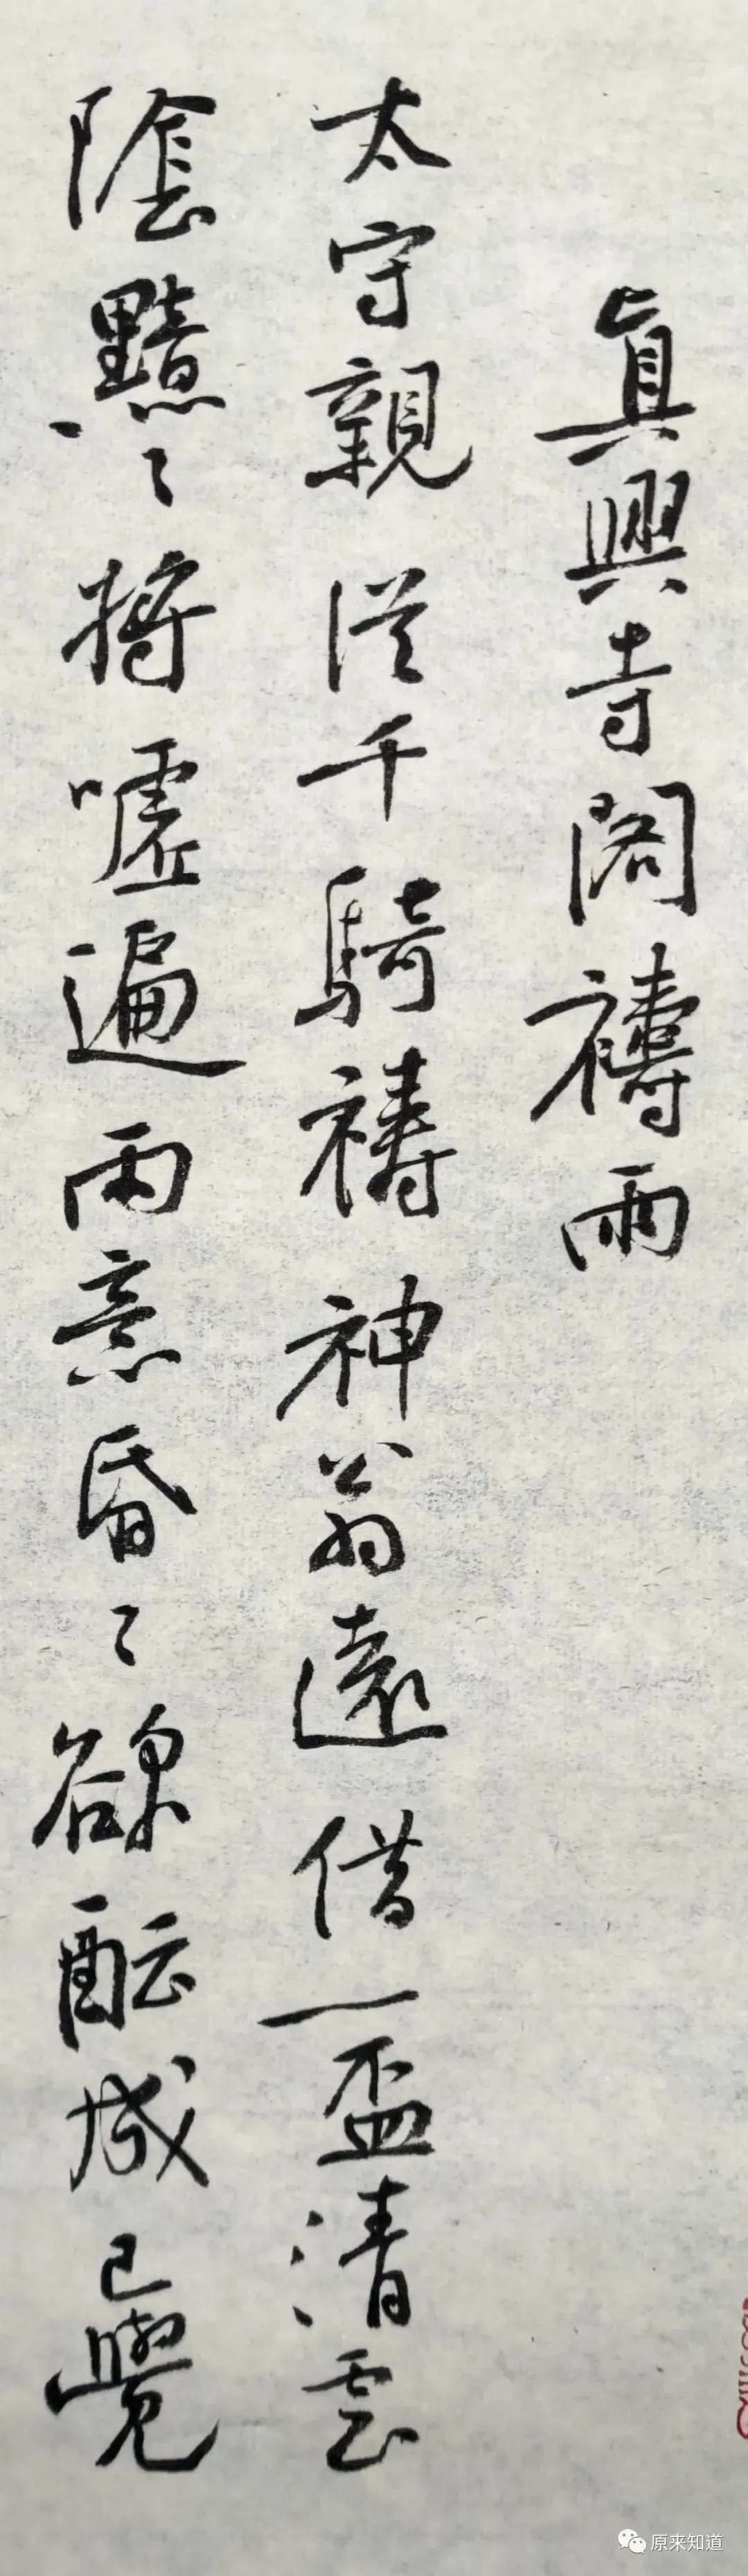 眞興寺閣禱雨
太守親從千騎禱神翁遠借一盃清雲
陰黯〻將噓遍雨意昏〻欲酝成已覺
原来知道